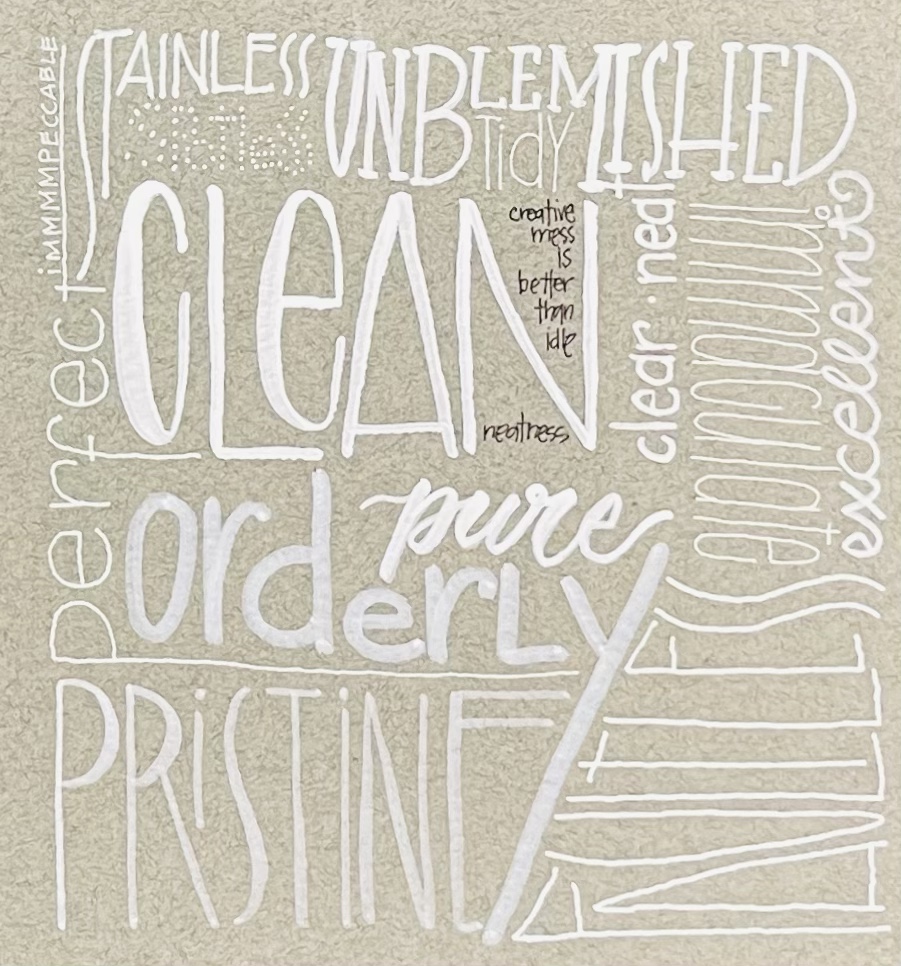 iMMMPECCABLE
STAINLESS
UNBLEMISHED
TidY
CLeAN
creative
mess
is
better
than
idle
neatness
clear · neat
immaculate
excellent
perfect
pure
orderLY
PRiSTiNE